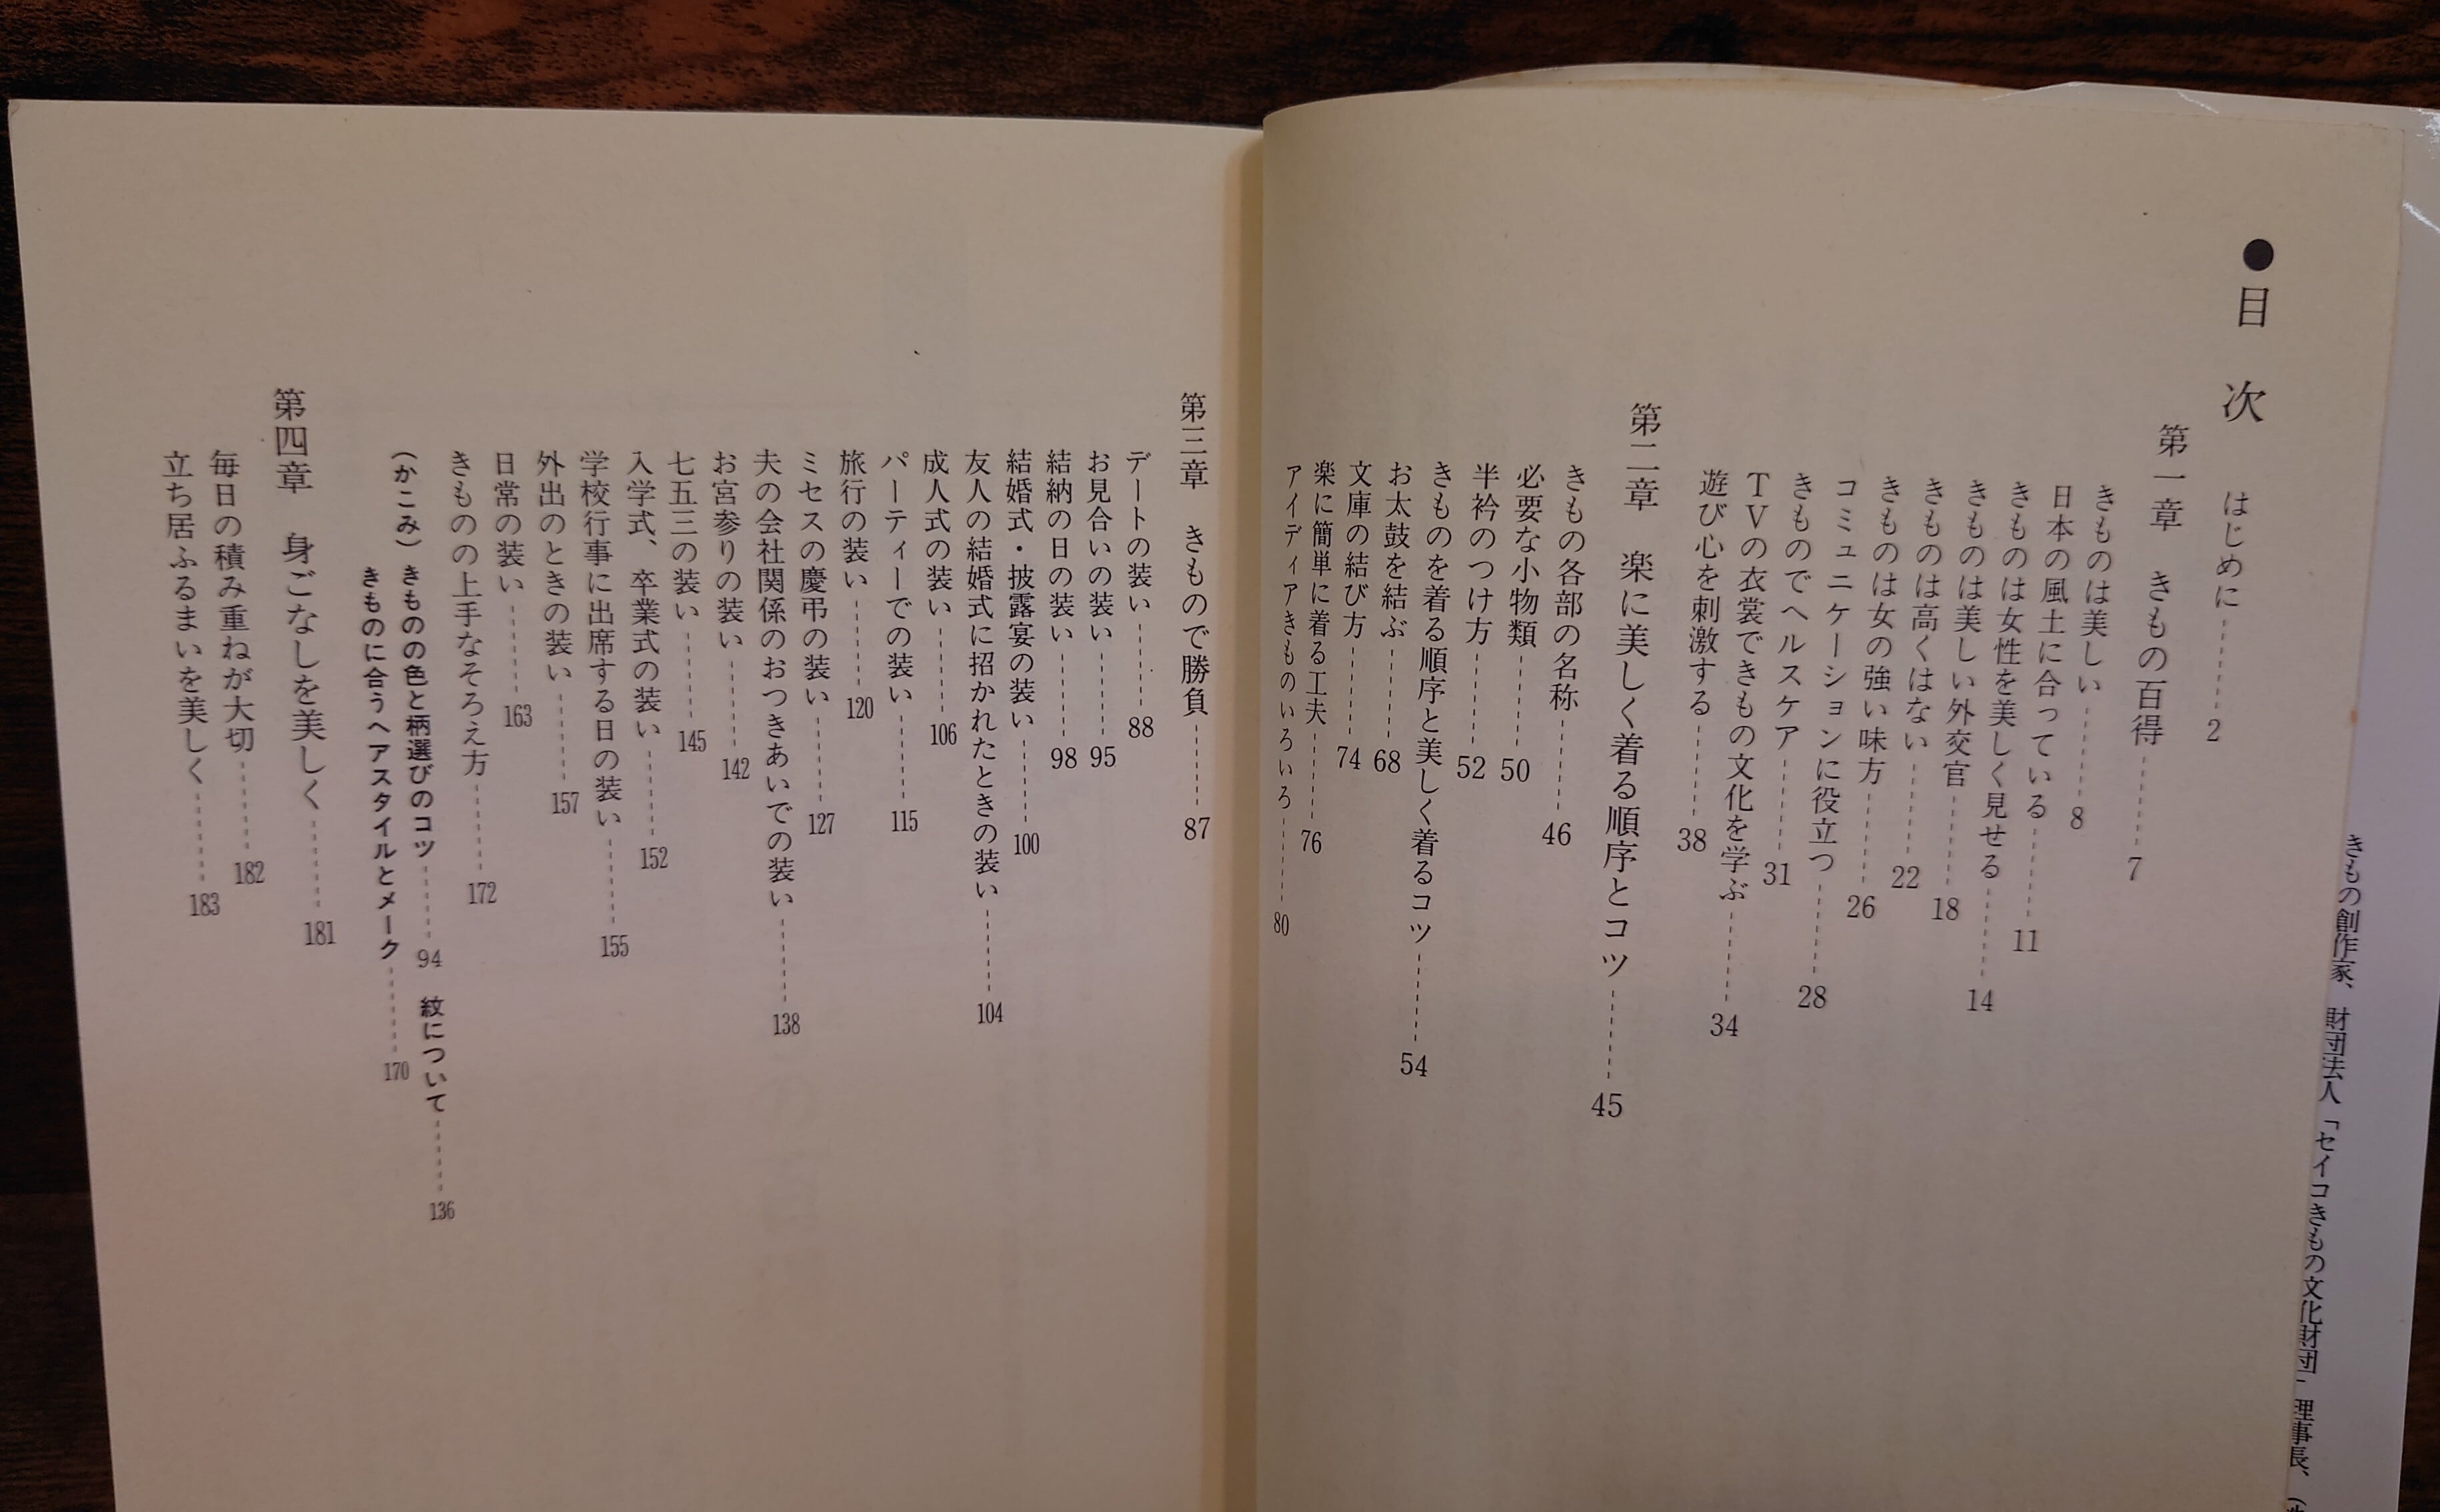 ●目次
はじめに 2
第一章 きもの百得 7
きものは美しい 8
日本の風土に合っている 11
きものは女性を美しく見せる 14
きものは美しい外交官 18
きものは高くはない 22
きものは女の強い味方 26
コミュニケーションに役立つ 28
きものでヘルスケア 31
TVの衣裳できもの文化を学ぶ 34
遊び心を刺激する 38
第二章 楽に美しく着る順序とコツ 45
きもの各部の名称 46
必要な小物類 50
半衿のつけ方 52
きものを着る順序と美しく着るコツ 54
お太鼓を結ぶ 68
文庫の結び方 74
楽に簡単に着る工夫 76
アイディアきものいろいろ 80
第三章 きもので勝負 87
デートの装い 88
お見合いの装い 95
結納の日の装い 98
結婚式・披露宴の装い 100
友人の結婚式に招かれたときの装い 104
成人式の装い 106
パーティーでの装い 115
旅行の装い 120
ミセスの慶弔の装い 127
夫の会社関係のおつきあいでの装い 138
お宮参りの装い 142
七五三の装い 145
入学式、卒業式の装い 152
学校行事に出席する日の装い 155
外出のときの装い 157
日常の装い 163
きものの上手なそろえ方 172
（かこみ）きものの色と柄選びのコツ 94 紋について 136
きものに合うヘアスタイルとメーク 170
第四章 身ごなしを美しく 181
毎日の積み重ねが大切 182
立ち居ふるまいを美しく 183
きもの創作家、財団法人「セイコきもの文化財団」理事長、